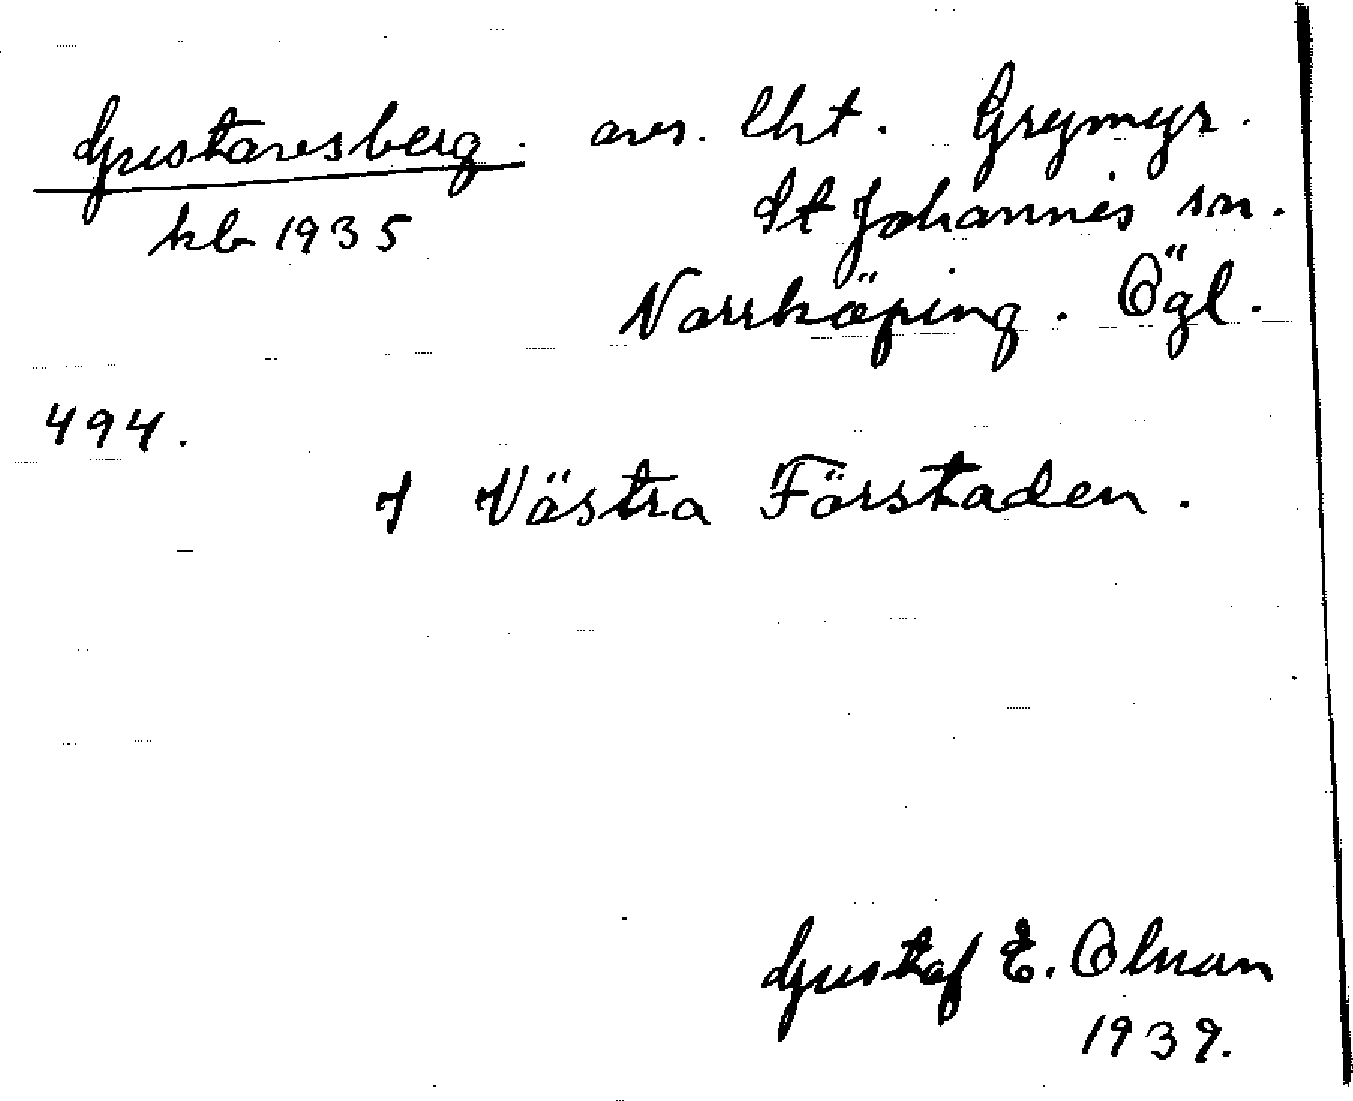 Gustavsberg. avs. lht. Grymyr.
kb 1935 St Johannes sn.
Norrköping. Ögl.
494.
I Västra Förstaden.
Gustaf E. Olman
1939.